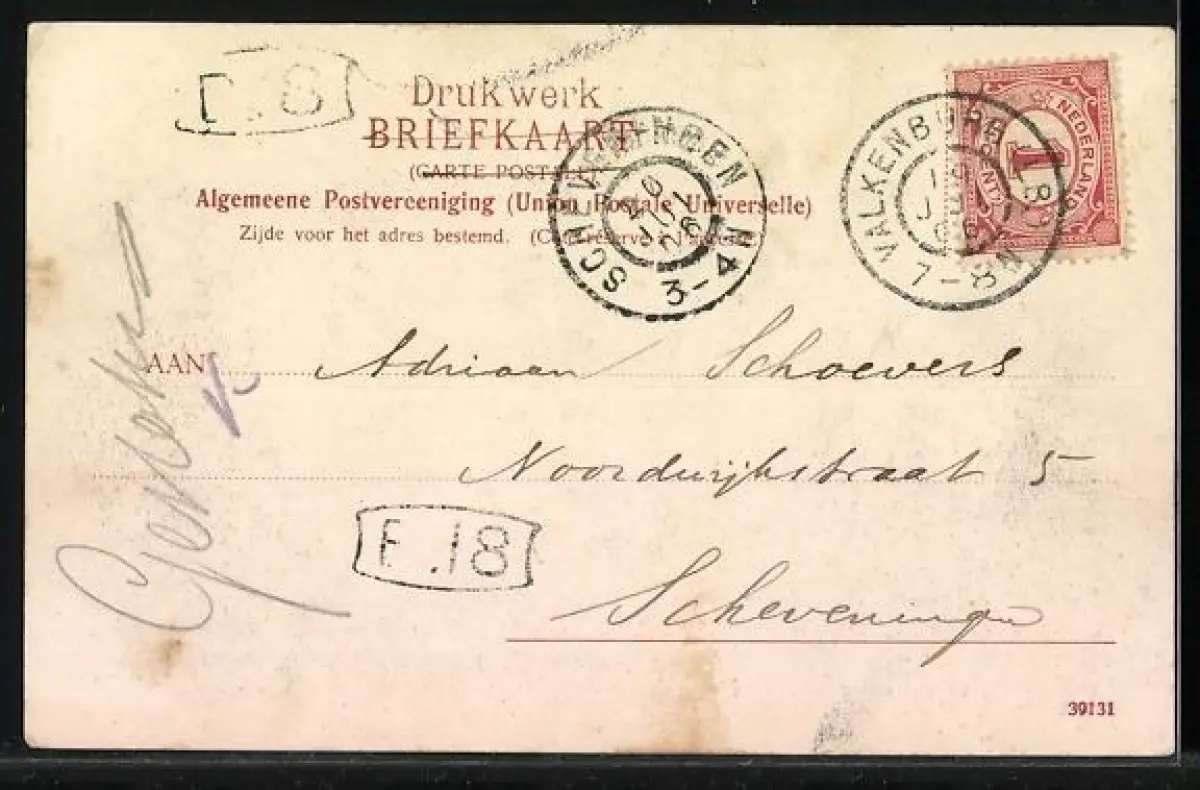 .18
Drukwerk
BRIEFKAART
(CARTE POSTALE)
Algemeene Postvereeniging (Union Postale Universelle)
Zijde voor het adres bestemd.
SCHEVENINGEN
3-4 N
VALKENBURG
7-8 N
NEDERLAND
1
CENT
AAN Adriaan Schoevers
Noordwijkstraat 5
F.18
Scheveningen
39131